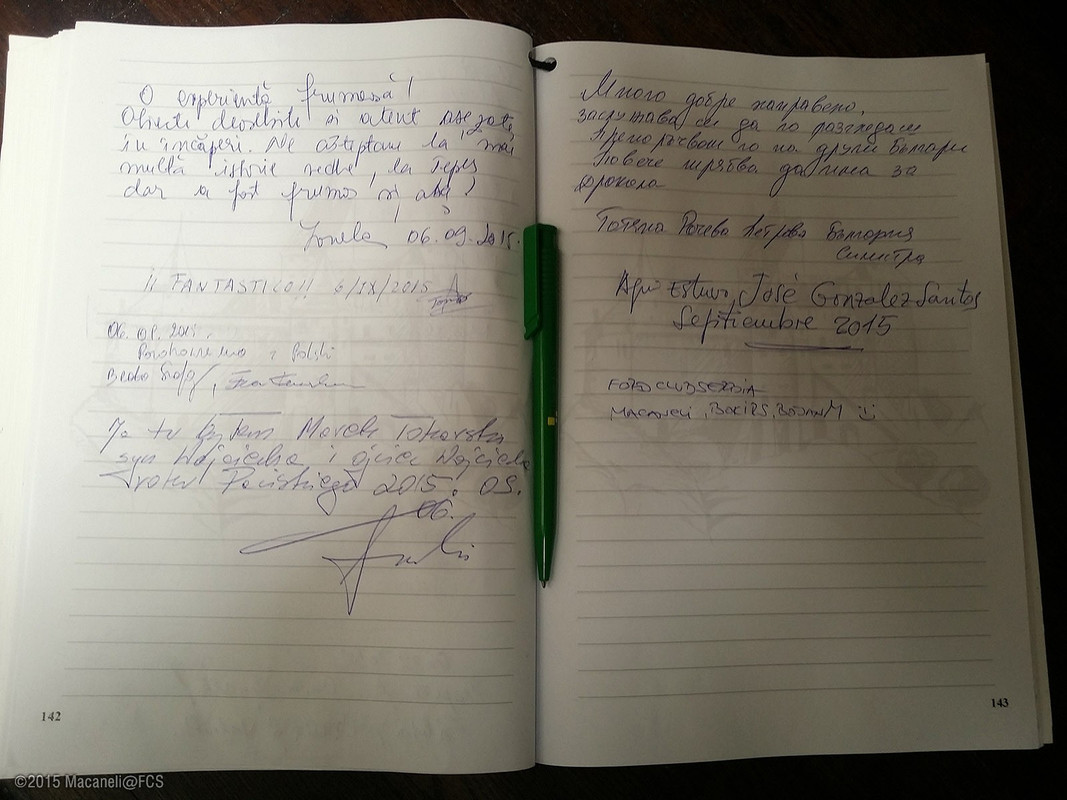 O experiență frumoasă!
Obiecte deosebite si atent asezate
in încăperi. Ne asteptam la mai
multă istorie veche, la Tepes
dar a fost frumos si asa!
Ionela 06.09.2015.
¡¡ FANTASTICO!! 6/IX/2015
06. 09. 2015.
Pozdrawiamy z Polski
Ja tu byłem Marek Tokarski
syn Wojciecha i ojciec Wojciecha
roku Pańskiego 2015. 09.
06.
142
Много добре направено,
заслужава си да го разгледаш
Препоръчвам го на други българи
Повече трябва да има за
Дракола
Татяна Рачева Петрова България
Силистра
Aqui Estuvo, José Gonzalez Santos
Septiembre 2015
FOTO CLUB SERBIA
MACANELI, BOKI RS, BOJAN M
143
©2015 Macaneli@FCS